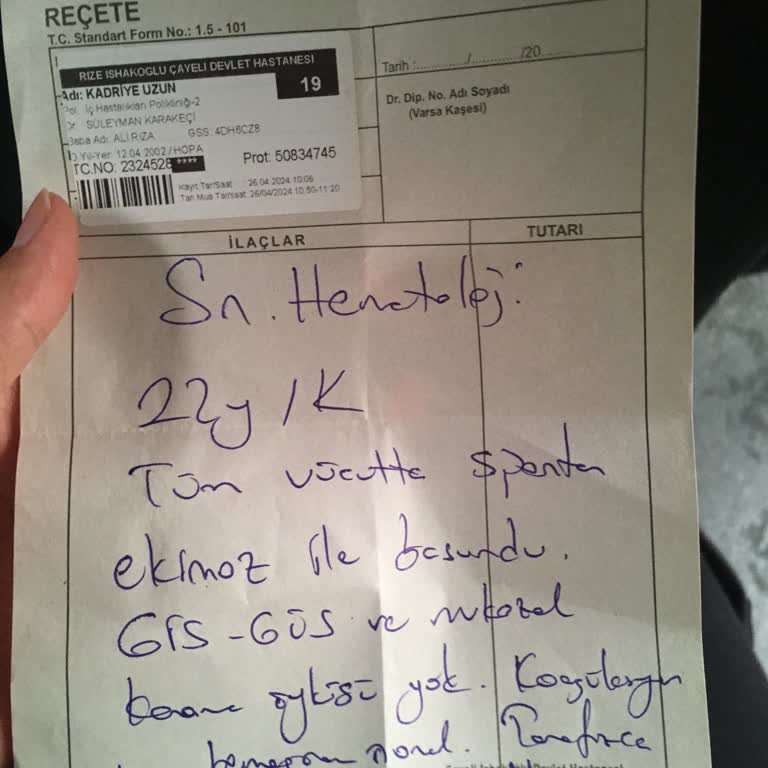 REÇETE
T.C. Standart Form No.: 1.5 - 101
RIZE ISHAKOGLU ÇAYELİ DEVLET HASTANESI
Adı: KADRİYE UZUN
19
Pol. İç Hastalıkları Polikliniği-2
Dr. SÜLEYMAN KARAKEÇİ
Baba Adı: ALİ RIZA GSS: 4DH6CZ8
D.Yıl-Yer: 12.04.2002 / HOPA
TC.NO. 2324528 **** Prot: 50834745
Kayıt Tar/Saat : 26.04.2024 10:06
Tah Mua Tar/saat: 26/04/2024 10:50-11:20
Tarih :............/............/20
Dr. Dip. No. Adı Soyadı
(Varsa Kaşesi)
İLAÇLAR
TUTARI
Sn. Hematoloji:
22y / K
Tüm vücutta spontan
ekimoz ile başvurdu.
GİS - GÜS ve mukozal
kanama öyküsü yok. Koagülasyon
hemogram normal. Tarafınızca